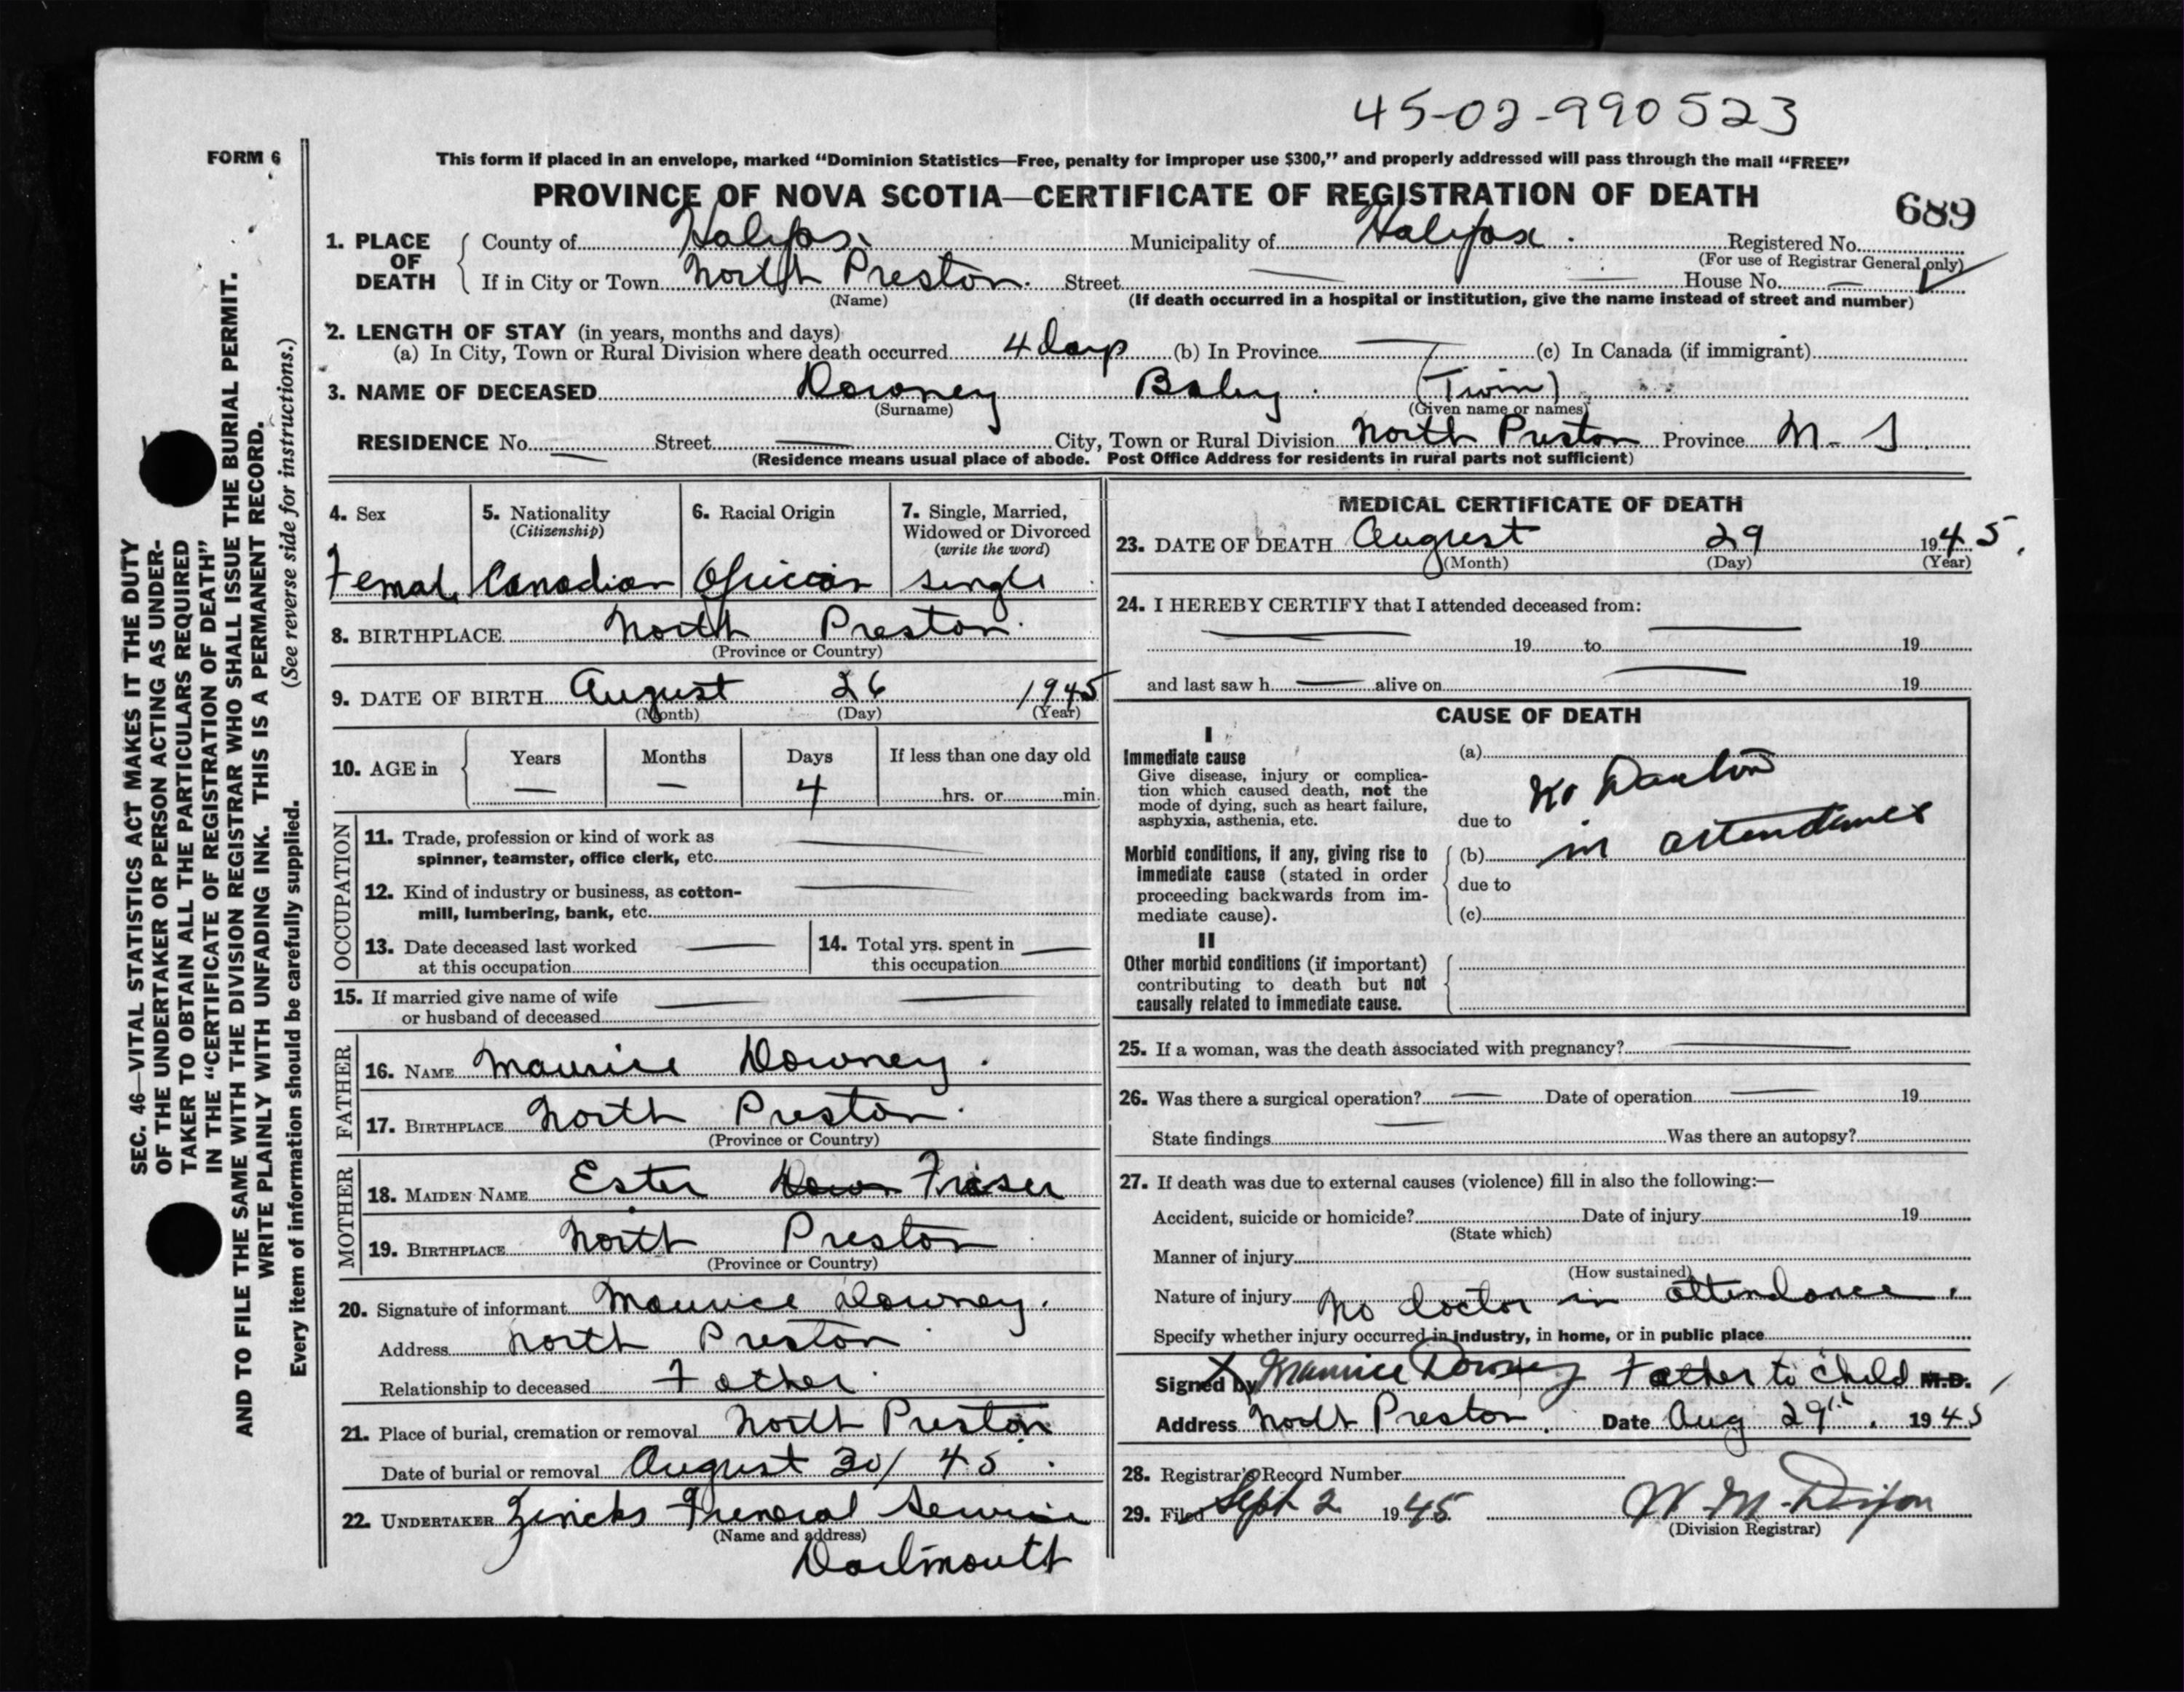 45-02-990523
FORM 6
This form if placed in an envelope, marked “Dominion Statistics—Free, penalty for improper use $300,” and properly addressed will pass through the mail “FREE”
PROVINCE OF NOVA SCOTIA—CERTIFICATE OF REGISTRATION OF DEATH
689
1. PLACE OF DEATH
County of Halifax. Municipality of Halifax. Registered No.
(For use of Registrar General only)
If in City or Town North Preston. Street — House No. —
(Name) (If death occurred in a hospital or institution, give the name instead of street and number)
2. LENGTH OF STAY (in years, months and days)
(a) In City, Town or Rural Division where death occurred 4 days (b) In Province — (c) In Canada (if immigrant)
3. NAME OF DECEASED Downey Baby. (Twin)
(Surname) (Given name or names)
RESIDENCE No. — Street — City, Town or Rural Division North Preston Province N-S
(Residence means usual place of abode. Post Office Address for residents in rural parts not sufficient)
4. Sex
Female
5. Nationality
(Citizenship)
Canadian
6. Racial Origin
African
7. Single, Married,
Widowed or Divorced
(write the word)
single
8. BIRTHPLACE North Preston.
(Province or Country)
9. DATE OF BIRTH August 26 1945
(Month) (Day) (Year)
10. AGE in
Years Months Days If less than one day old
— — 4 hrs. or min.
OCCUPATION
11. Trade, profession or kind of work as
spinner, teamster, office clerk, etc. —
12. Kind of industry or business, as cotton-
mill, lumbering, bank, etc. —
13. Date deceased last worked
at this occupation —
14. Total yrs. spent in
this occupation —
15. If married give name of wife
or husband of deceased —
FATHER
16. NAME Maurice Downey.
17. BIRTHPLACE North Preston.
(Province or Country)
MOTHER
18. MAIDEN NAME Ester Down Fraser
19. BIRTHPLACE North Preston
(Province or Country)
20. Signature of informant Maurice Downey.
Address North Preston
Relationship to deceased Father.
21. Place of burial, cremation or removal North Preston
Date of burial or removal August 30/45.
22. UNDERTAKER Zincks Funeral Service
(Name and address)
Dartmouth
MEDICAL CERTIFICATE OF DEATH
23. DATE OF DEATH August 29 1945.
(Month) (Day) (Year)
24. I HEREBY CERTIFY that I attended deceased from:
— 19 to — 19
and last saw h — alive on — 19
CAUSE OF DEATH
I
Immediate cause
Give disease, injury or complica-
tion which caused death, not the
mode of dying, such as heart failure,
asphyxia, asthenia, etc.
(a)
No Doctor
due to
Morbid conditions, if any, giving rise to
immediate cause (stated in order
proceeding backwards from im-
mediate cause).
(b) in attendance
due to
(c)
II
Other morbid conditions (if important)
contributing to death but not
causally related to immediate cause.
25. If a woman, was the death associated with pregnancy? —
26. Was there a surgical operation? — Date of operation — 19
State findings — Was there an autopsy?
27. If death was due to external causes (violence) fill in also the following:—
Accident, suicide or homicide? Date of injury 19
(State which)
Manner of injury
(How sustained)
Nature of injury No doctor in attendance.
Specify whether injury occurred in industry, in home, or in public place
Signed by X Maurice Downey Father to child M.D.
Address North Preston. Date Aug 29th. 1945
28. Registrar's Record Number
29. Filed Sept 2 1945 W. M. Dixon
(Division Registrar)
SEC. 46—VITAL STATISTICS ACT MAKES IT THE DUTY
OF THE UNDERTAKER OR PERSON ACTING AS UNDER-
TAKER TO OBTAIN ALL THE PARTICULARS REQUIRED
IN THE “CERTIFICATE OF REGISTRATION OF DEATH”
AND TO FILE THE SAME WITH THE DIVISION REGISTRAR WHO SHALL ISSUE THE BURIAL PERMIT.
WRITE PLAINLY WITH UNFADING INK. THIS IS A PERMANENT RECORD.
Every item of information should be carefully supplied. (See reverse side for instructions.)